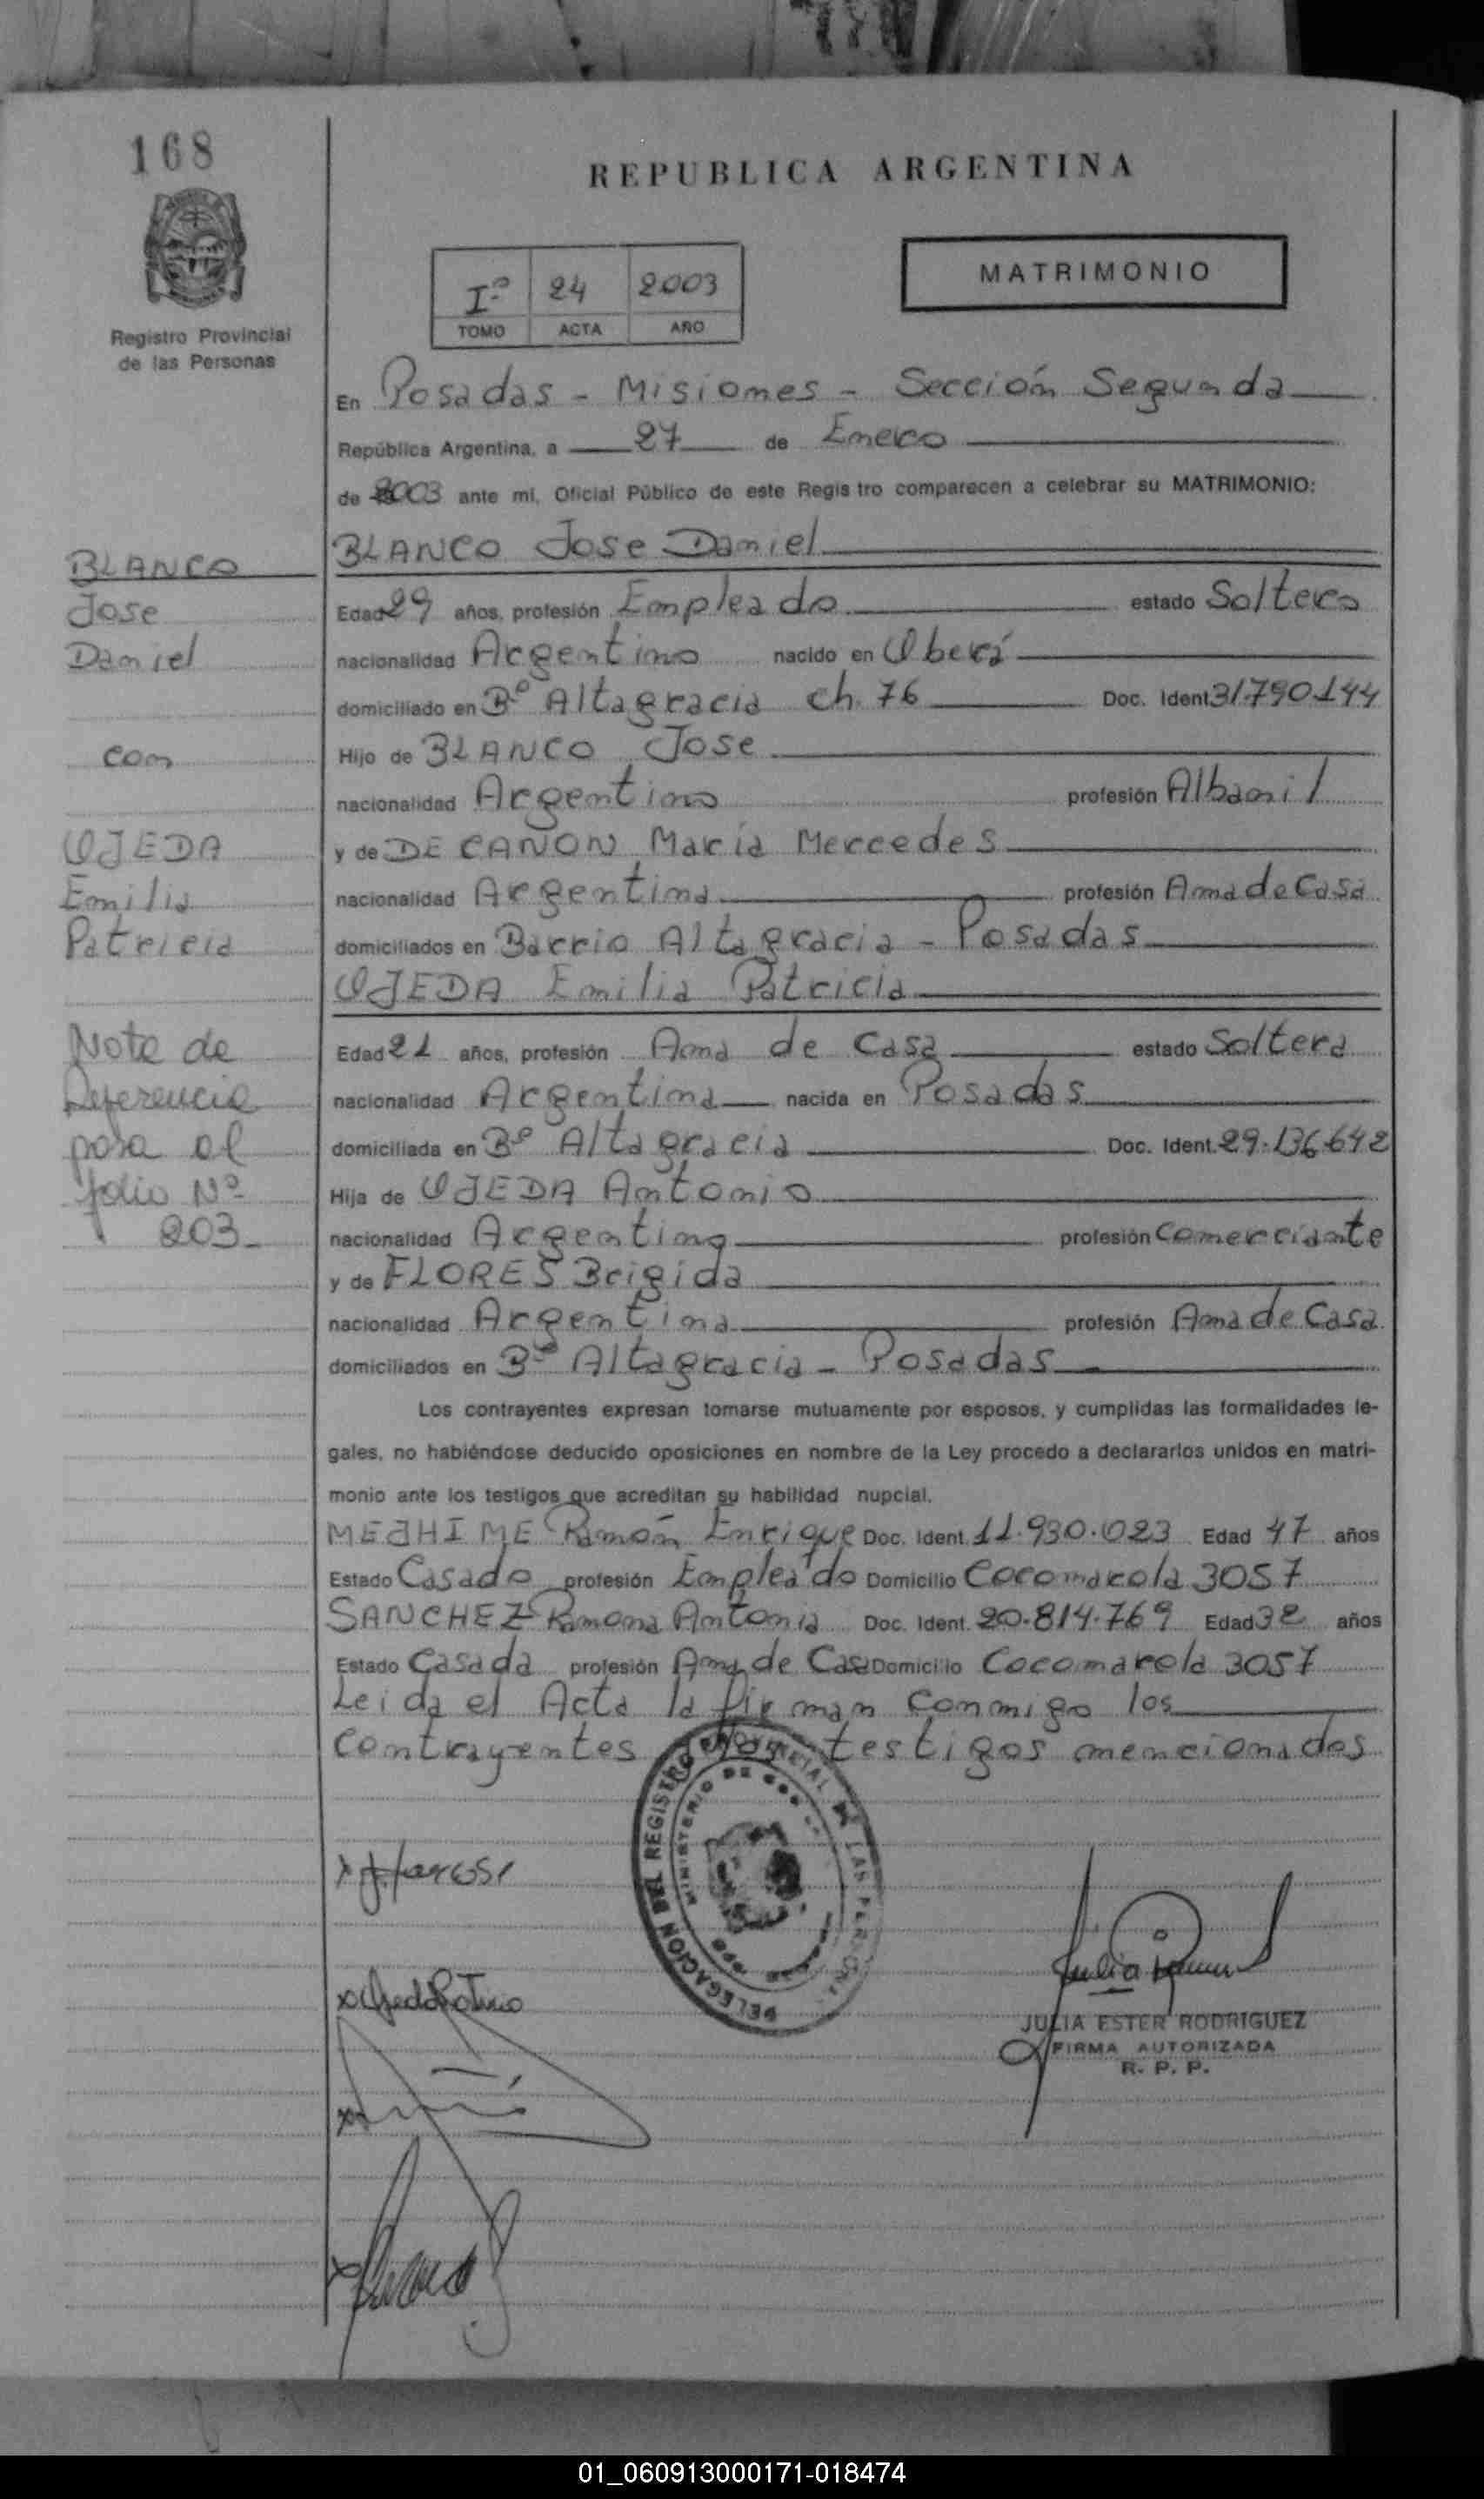 168
REPUBLICA ARGENTINA
Registro Provincial
de las Personas
Iº 24 2003
TOMO ACTA AÑO
MATRIMONIO
En Posadas - Misiones - Sección Segunda
República Argentina, a 27 de Enero
de 2003 ante mi, Oficial Público de este Registro comparecen a celebrar su MATRIMONIO:
BLANCO Jose Daniel
Edad 29 años, profesión Empleado estado Soltero
nacionalidad Argentino nacido en Oberá
domiciliado en Bº Altagracia ch. 76 Doc. Ident. 31.790.144
Hijo de BLANCO Jose
nacionalidad Argentino profesión Albanil
y de DE CANON María Mercedes
nacionalidad Argentina profesión Ama de Casa
domiciliados en Barrio Altagracia - Posadas
OJEDA Emilia Patricia
Edad 21 años, profesión Ama de Casa estado Soltera
nacionalidad Argentina nacida en Posadas
domiciliada en Bº Altagracia Doc. Ident. 29.136.642
Hija de OJEDA Antonio
nacionalidad Argentino profesión Comerciante
y de FLORES Brigida
nacionalidad Argentina profesión Ama de Casa
domiciliados en Bº Altagracia - Posadas
Los contrayentes expresan tomarse mutuamente por esposos, y cumplidas las formalidades le-
gales, no habiéndose deducido oposiciones en nombre de la Ley procedo a declararlos unidos en matri-
monio ante los testigos que acreditan su habilidad nupcial.
MEJHIME Ramón Enrique Doc. Ident. 11.930.023 Edad 47 años
Estado Casado profesión Empleado Domicilio Cocomarola 3057
SANCHEZ Ramona Antonia Doc. Ident. 20.814.769 Edad 32 años
Estado Casada profesión Ama de Casa Domicilio Cocomarola 3057
Leida el Acta la firman conmigo los
contrayentes testigos mencionados
BLANCO
Jose
Daniel
con
OJEDA
Emilia
Patricia
Nota de
Referencia
pasa al
folio Nº
203-
DELEGACION DEL REGISTRO PROVINCIAL DE LAS PERSONAS
MINISTERIO DE
JULIA ESTER RODRIGUEZ
FIRMA AUTORIZADA
R. P. P.
01_060913000171-018474